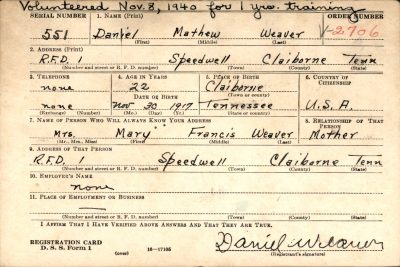 Volunteered Nov. 8, 1940 for 1 yr. training
SERIAL NUMBER 1. NAME (Print) ORDER NUMBER
551 Daniel Mathew Weaver V-2706
(First) (Middle) (Last)
2. ADDRESS (Print)
R.F.D. 1 Speedwell Claiborne Tenn
(Number and street or R. F. D. number) (Town) (County) (State)
3. TELEPHONE 4. AGE IN YEARS 5. PLACE OF BIRTH 6. COUNTRY OF CITIZENSHIP
none 22 Claiborne
DATE OF BIRTH (Town or county)
none Nov 30 1917 Tennessee U.S.A.
(Exchange) (Number) (Mo.) (Day) (Yr.) (State or country)
7. NAME OF PERSON WHO WILL ALWAYS KNOW YOUR ADDRESS 8. RELATIONSHIP OF THAT PERSON
Mrs. Mary Francis Weaver Mother
(Mr., Mrs., Miss) (First) (Middle) (Last)
9. ADDRESS OF THAT PERSON
R.F.D. 1 Speedwell Claiborne Tenn
(Number and street or R. F. D. number) (Town) (County) (State)
10. EMPLOYER'S NAME
none
11. PLACE OF EMPLOYMENT OR BUSINESS
(Number and street or R. F. D. number) (Town) (County) (State)
I AFFIRM THAT I HAVE VERIFIED ABOVE ANSWERS AND THAT THEY ARE TRUE.
REGISTRATION CARD
D. S. S. Form 1 (over) 16—17105 Daniel Weaver
(Registrant's signature)